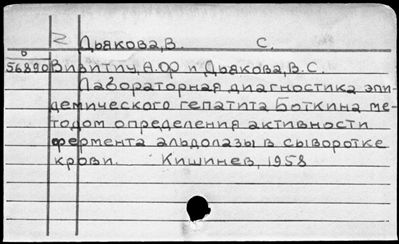 Дьякова, В. С.
56890 Визитич, А.Ф и Дьякова, В.С.
Лабораторная диагностика эпи-
демического гепатита Боткина ме-
тодом определения активности
фермента альдолазы в сыворотке
крови. Кишинев, 1958